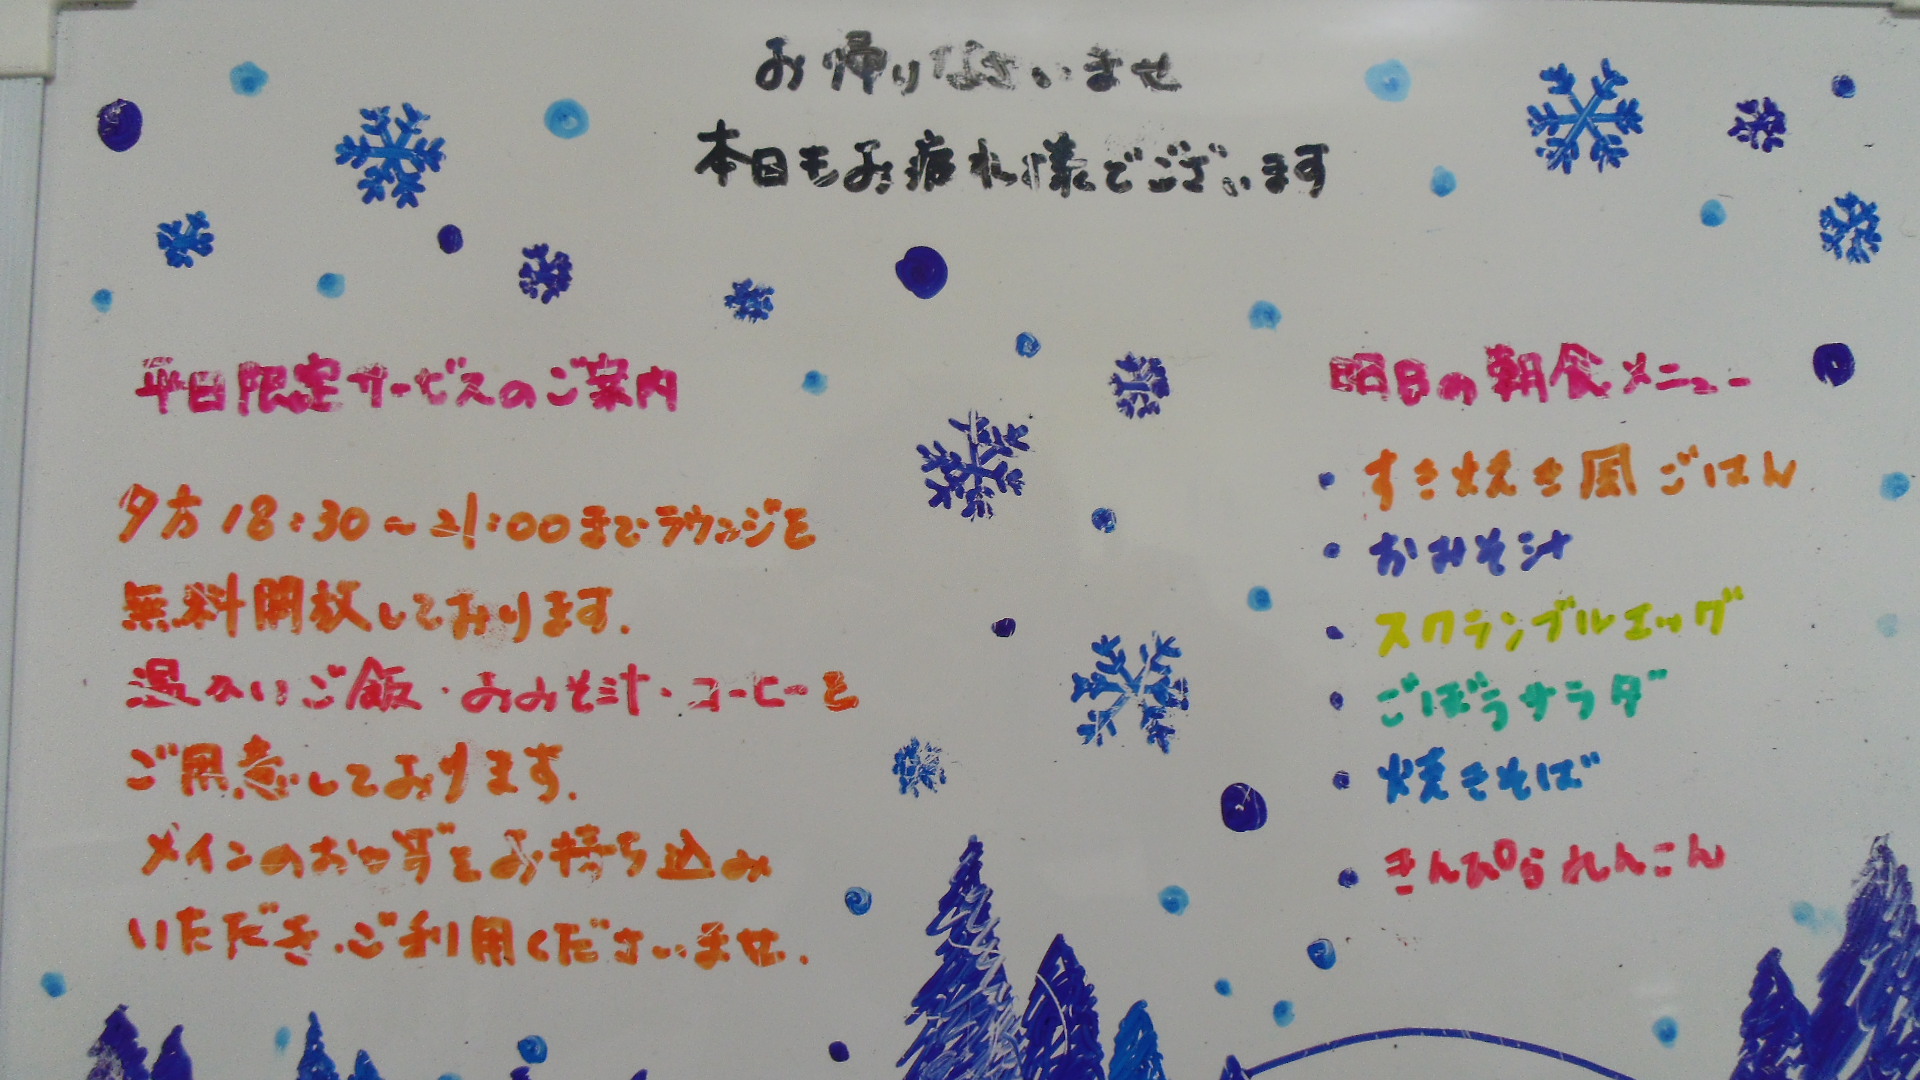 お帰りなさいませ
本日もお疲れ様でございます
平日限定サービスのご案内
夕方18:30～21:00までラウンジを
無料開放しております.
温かいご飯・おみそ汁・コーヒーを
ご用意しております.
メインのおかずをお持ち込み
いただき.ご利用くださいませ.
明日の朝食メニュー
・すき焼き風ごはん
・おみそ汁
・スクランブルエッグ
・ごぼうサラダ
・焼きそば
・きんぴられんこん